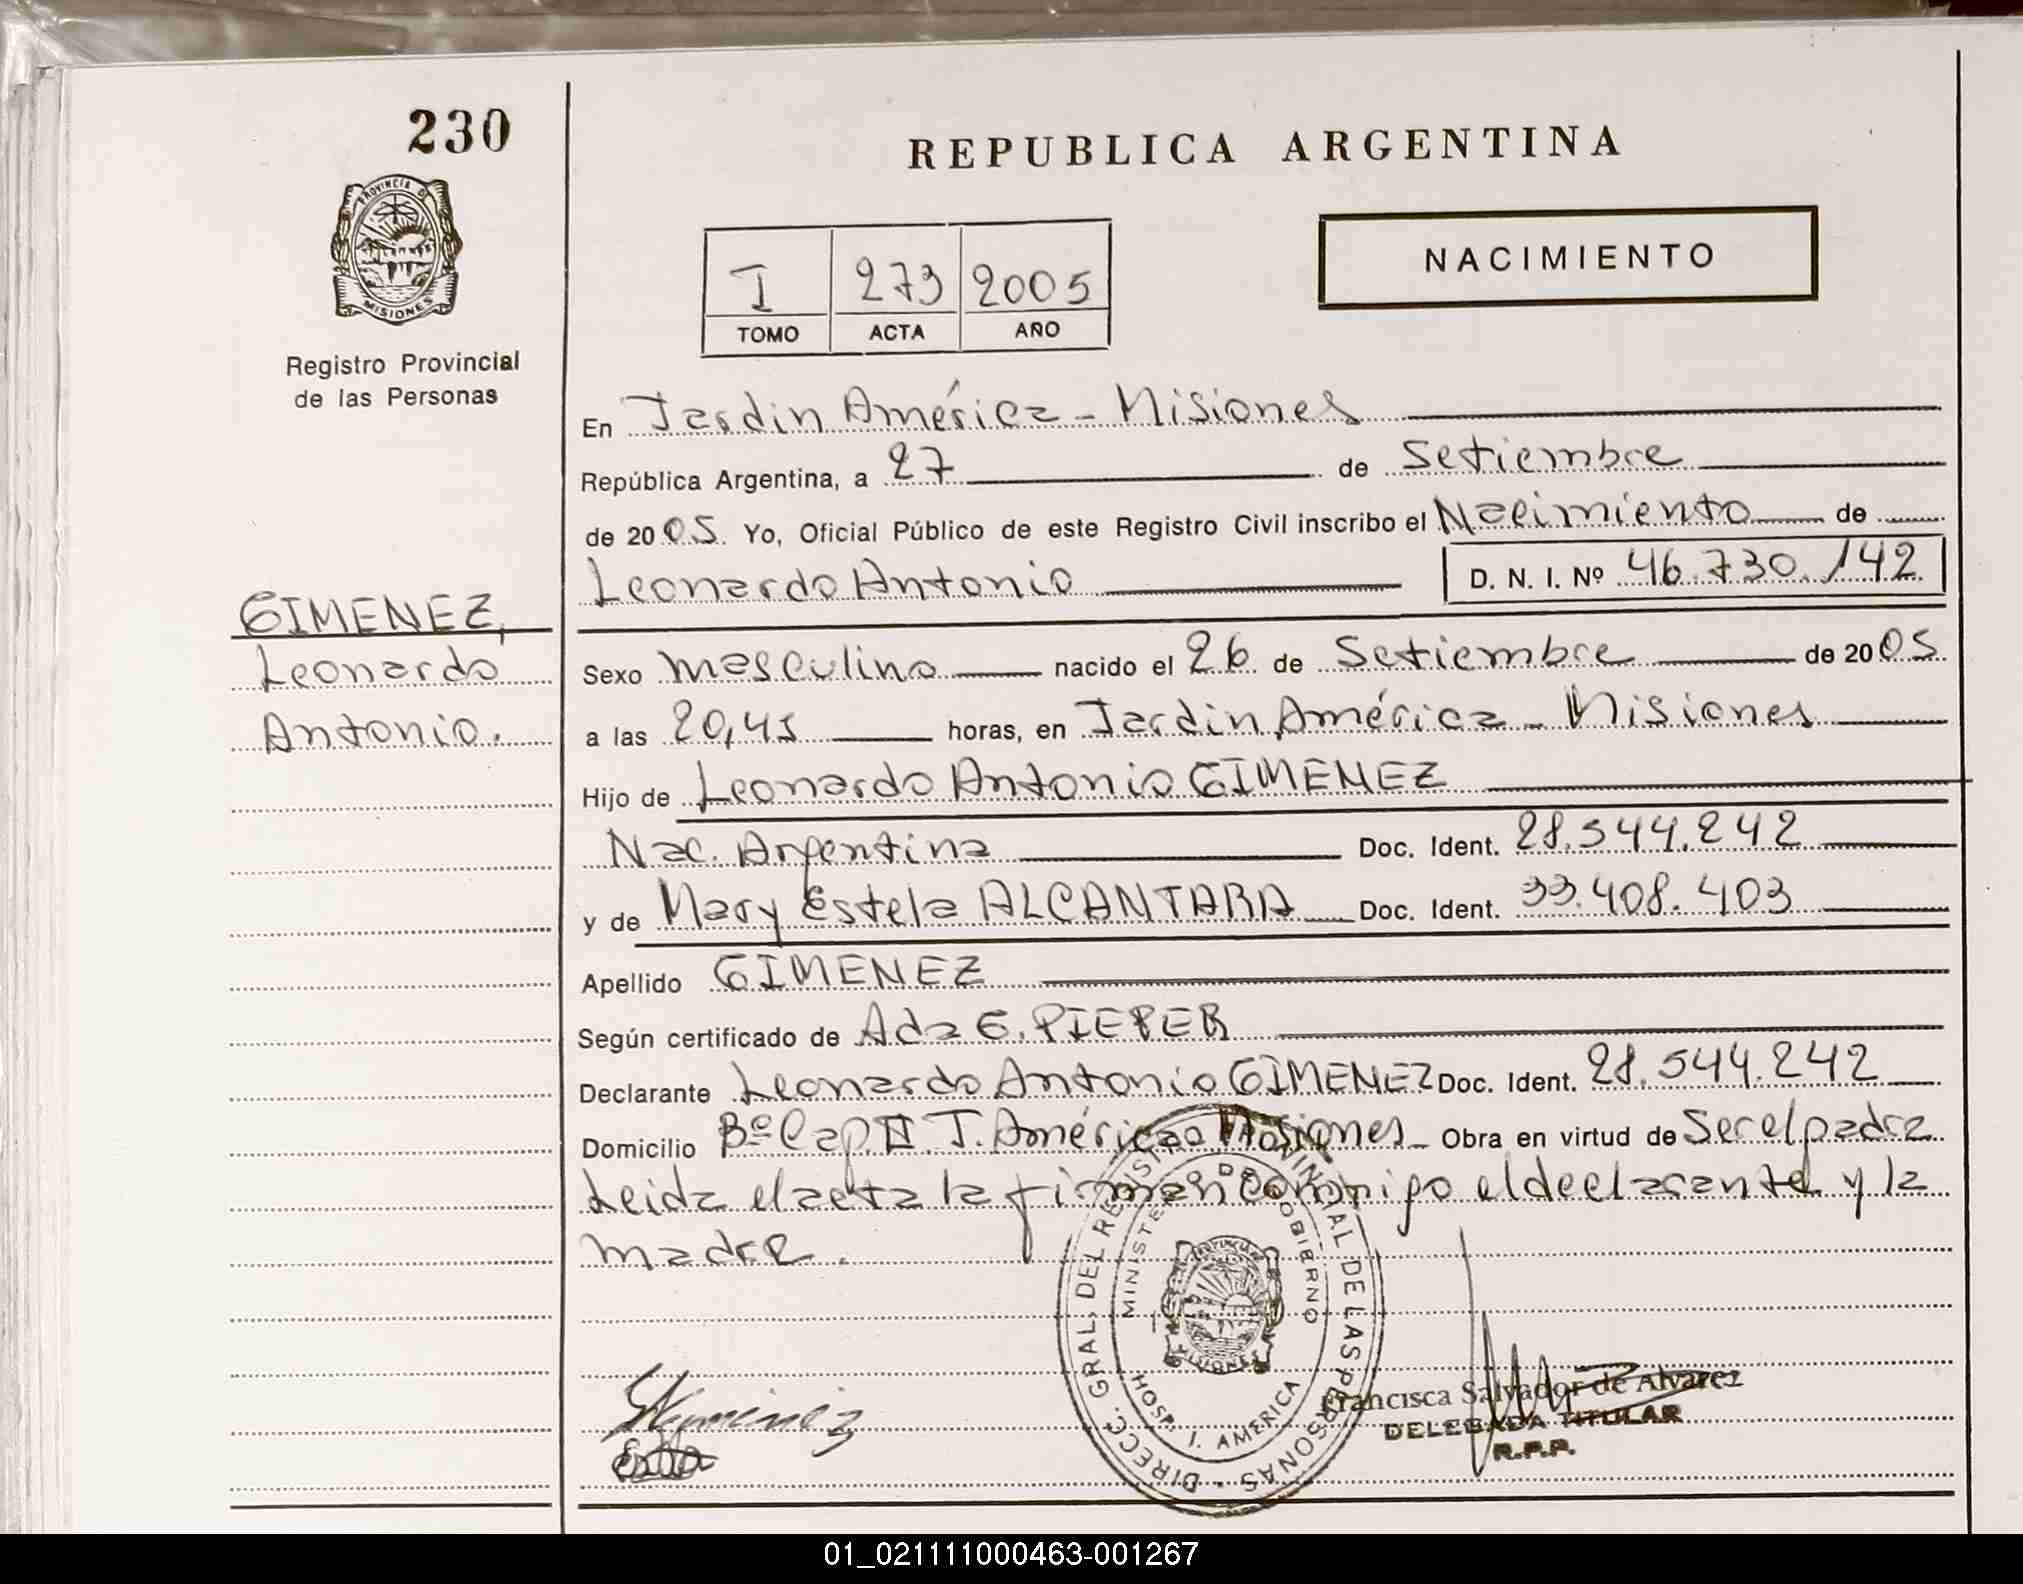 230
PROVINCIA DE
MISIONES
Registro Provincial
de las Personas
GIMENEZ,
Leonardo
Antonio.
REPUBLICA ARGENTINA
I 273 2005
TOMO ACTA AÑO
NACIMIENTO
En Jardin América - Misiones
República Argentina, a 27 de Setiembre
de 2005. Yo, Oficial Público de este Registro Civil inscribo el Nacimiento de
Leonardo Antonio D. N. I. Nº 46.730.142
Sexo masculino nacido el 26 de Setiembre de 2005
a las 20,45 horas, en Jardin América - Misiones
Hijo de Leonardo Antonio GIMENEZ
Nac. Argentina Doc. Ident. 28.544.242
y de Mary Estela ALCANTARA Doc. Ident. 33.408.403
Apellido GIMENEZ
Según certificado de Ada G. PIEPER
Declarante Leonardo Antonio GIMENEZ Doc. Ident. 28.544.242
Domicilio Bº Cap. II J. América Misiones Obra en virtud de Ser el padre
Leida el acta la firman conmigo el declarante y la
madre.
DIRECC. GRAL. DEL REGISTRO PROVINCIAL DE LAS PERSONAS
MINISTERIO DE GOBIERNO
HOSP. J. AMERICA
MISIONES
Gimenez
Francisca Salvador de Alvarez
DELEGADA TITULAR
R.P.P.
01_021111000463-001267